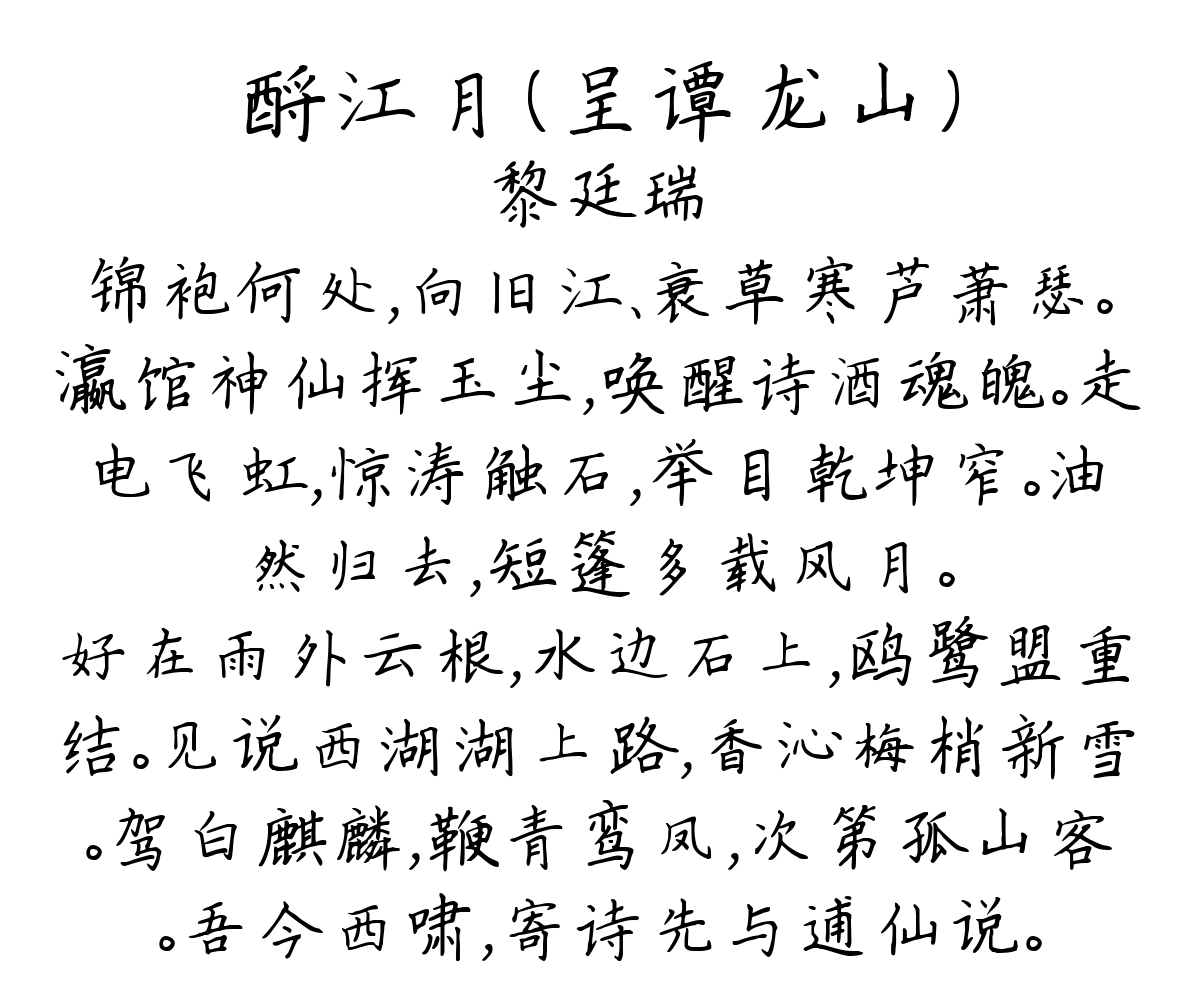 酹江月(呈谭龙山)
黎廷瑞
锦袍何处,向旧江、衰草寒芦萧瑟。
瀛馆神仙挥玉尘,唤醒诗酒魂魄。走
电飞虹,惊涛触石,举目乾坤窄。油
然归去,短篷多载风月。
好在雨外云根,水边石上,鸥鹭盟重
结。见说西湖湖上路,香沁梅梢新雪
。驾白麒麟,鞭青鸾凤,次第孤山客
。吾今西啸,寄诗先与逋仙说。